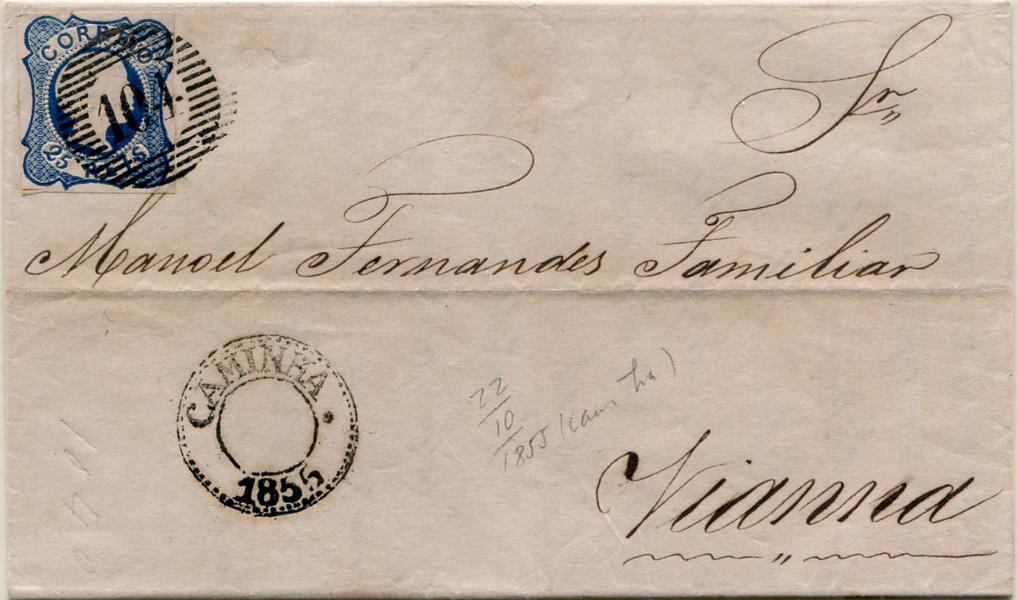 CORREIO
104
25 REIS
Sr.
Manoel Fernandes Familiar
CAMINHA
1855
22
10
1855
Vianna